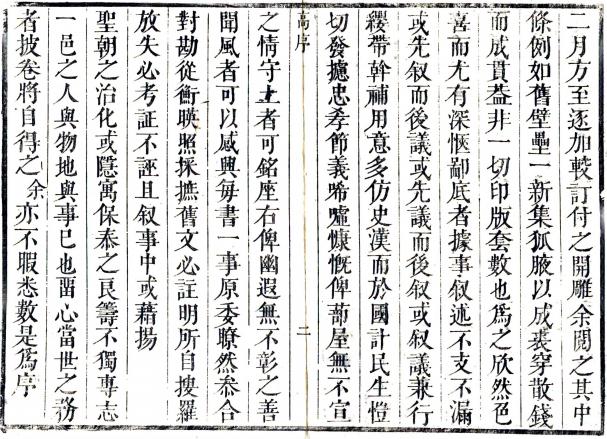 二月方至逐加較訂付之開雕余閱之其中
條例如舊壁壘一新集狐腋以成裘穿散錢
而成貫葢非一切印版套數也為之欣然色
喜而尤有深愜鄙底者據事叙述不支不漏
或先叙而後議或先議而後叙或叙議兼行
纓帶幹補用意多仿史漢而於國計民生愷
切發攄忠孝節義唏噓慷慨俾蔀屋無不宣
高序
二
之情守土者可銘座右俾幽遐無不彰之善
聞風者可以感興每書一事原委瞭然叅合
對勘從衡暎照採摭舊文必註明所自搜羅
放失必考証不誣且叙事中或藉揚
聖朝之治化或隱寓保泰之良籌不獨專志
一邑之人與物地與事已也畱心當世之務
者披卷將自得之余亦不暇悉數是爲序